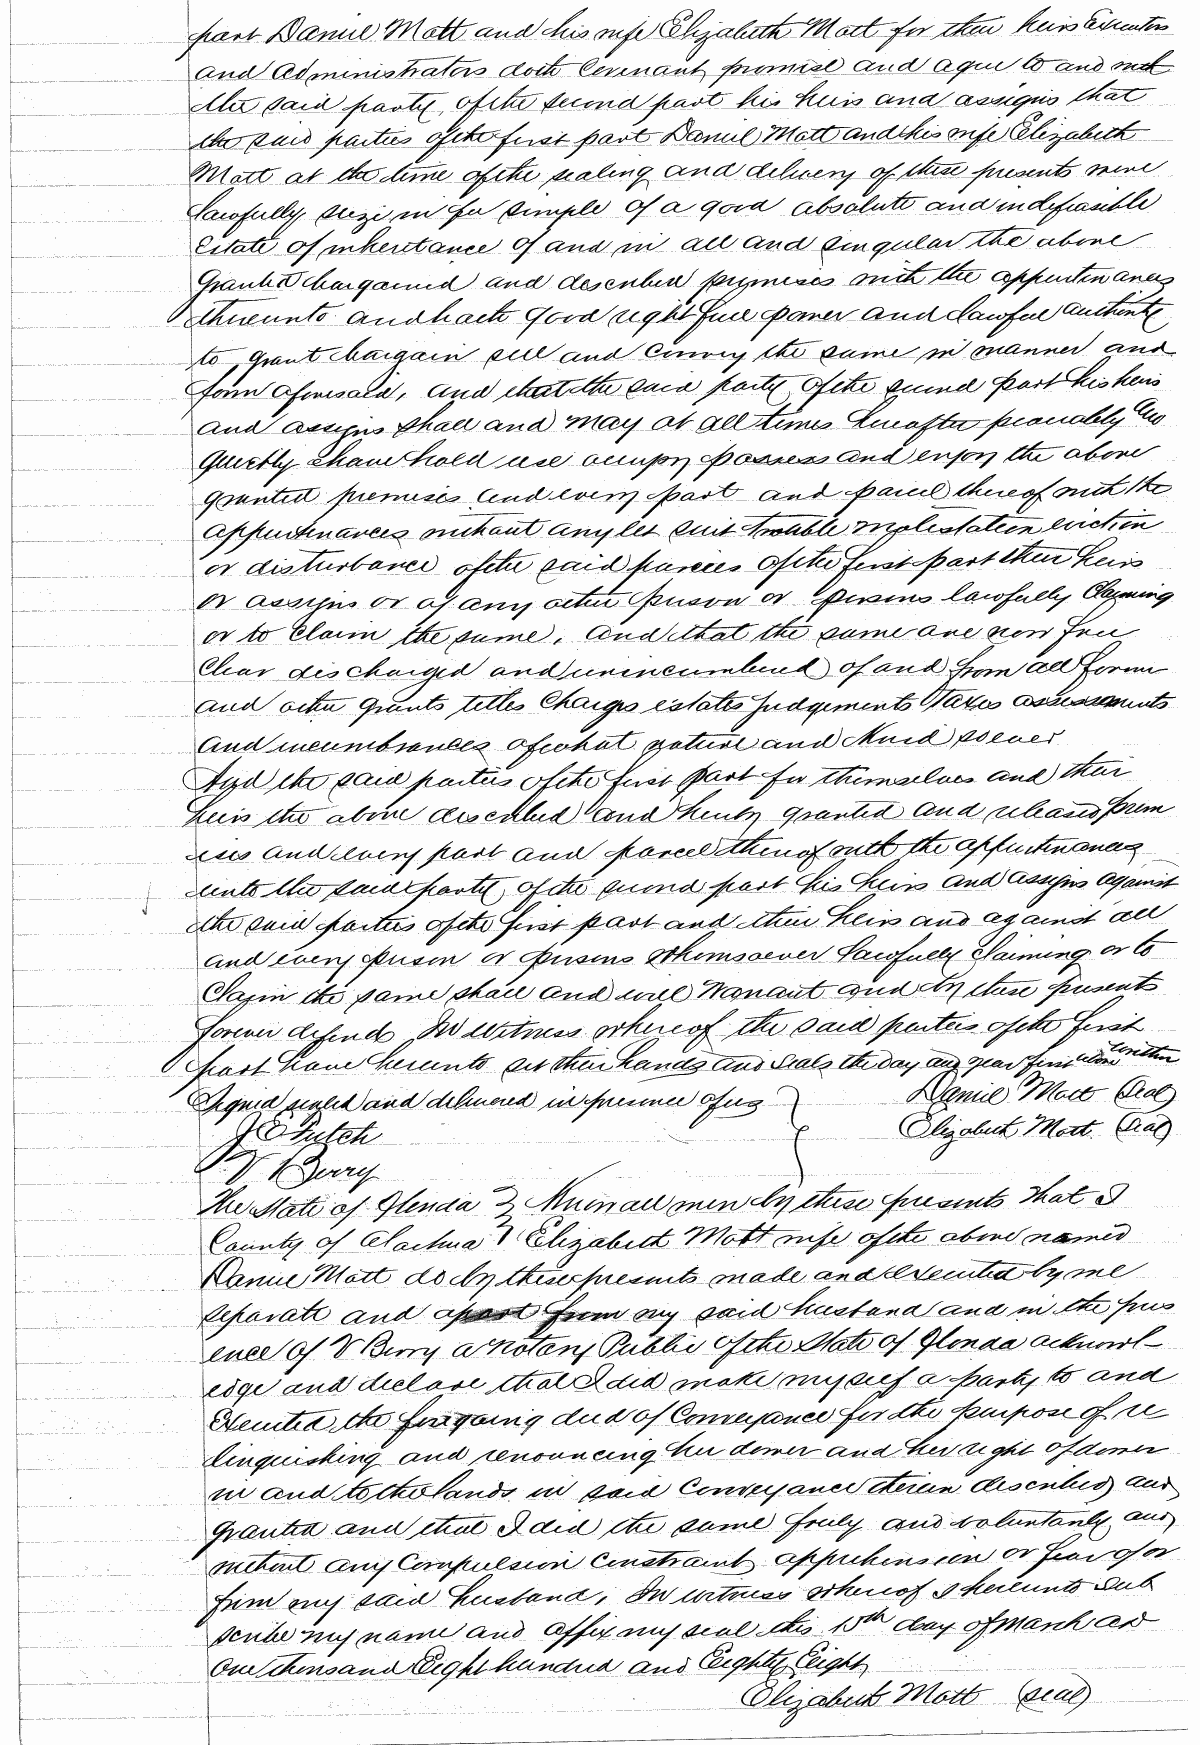 part Daniel Mott and his wife Elizabeth Mott for their heirs Executors
and administrators doth Covenant promise and agree to and with
the said party of the second part his heirs and assigns that
the said parties of the first part Daniel Mott and his wife Elizabeth
Mott at the time of the sealing and delivery of these presents were
lawfully seized in fee simple of a good absolute and indefeasible
Estate of inheritance of and in all and singular the above
granted bargained and described premises with the appurtinances
thereunto and hath good right full power and lawful authority
to grant bargain sell and convey the same in manner and
form aforesaid, and that the said party of the second part his heirs
and assigns shall and may at all times hereafter peaceably and
quietly have hold use occupy possess and enjoy the above
granted premises and every part and parcel thereof with the
appurtenances without any let suit trouble molestation eviction
or disturbance of the said parties of the first part their heirs
or assigns or of any other person or persons lawfully Claiming
or to Claim the same, and that the same are now free
Clear discharged and unincumbered of and from all former
and other grants titles Charges estates judgements taxes assessments
and incumbrances of what nature and kind soever
And the said parties of the first part for themselves and their
heirs the above described and hereby granted and released prem
ises and every part and parcel thereof with the appurtinances
unto the said party of the second part his heirs and assigns against
the said parties of the first part and their heirs and against all
and every person or persons whomsoever lawfully Claiming or to
Claim the same shall and will Warrant and by these presents
forever defend In witness whereof the said parties of the first
part have hereunto set their hands and seals the day and year first above written
Signed sealed and delivered in presence of us Daniel Mott (Seal)
J C Futch Elizabeth Mott (Seal)
V Berry
The State of Florida } Know all men by these presents that I
County of Alachua } Elizabeth Mott wife of the above named
Daniel Mott do by these presents made and executed by me
separate and apart from my said husband and in the pres
ence of V Berry a Notary Public of the State of Florida acknowl-
edge and declare that I did make myself a party to and
Executed the foregoing deed of Conveyance for the purpose of re
linquishing and renouncing her dower and her right of dower
in and to the lands in said Conveyance therein described and
granted and that I did the same freely and voluntarily and
without any Compulsion Constraint apprehension or fear of or
from my said husband, In witness whereof I hereunto sub
scribe my name and affix my seal this 15th day of March AD
One thousand Eight hundred and Eighty Eight
Elizabeth Mott (seal)